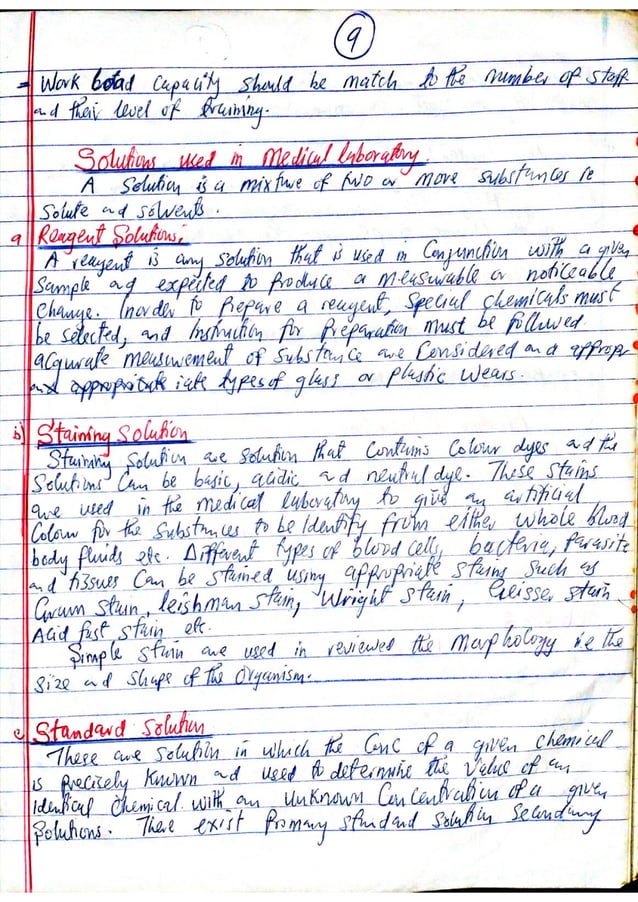 9
= Work load capacity should be match to the number of staff
and their level of training.
Solutions used in Medical laboratory
A solution is a mixture of two or more substances ie
Solute and solvents.
a Reagent Solutions;
A reagent is any solution that is used in Conjunction with a given
Sample and expected to produce a measurable or noticeable
Change. Inorder to prepare a reagent, special chemicals must
be selected, and Instruction for preparation must be followed
accurate measurement of substance are Considered and appropr
iate types of glass or plastic wears.
b) Staining Solution
Staining solution are solution that contains Colour dyes and the
Solutions Can be basic, acidic and neutral dye. These stains
are used in the medical laboratory to give an artificial
Colour for the substances to be Identify from either whole blood
body fluids etc. Different types of blood cells, bacteria, Parasite
and tissues Can be stained using appropriate stains such as
Gram stain, leishman stain, Wright stain, Geisser stain
Acid fast stain etc.
Simple stain are used in reviewed the morphology ie the
Size and shape of the Organism.
c Standard Solution
These are solution in which the Conc of a given chemical
is precisely known and used to determine the value of an
identical chemical with an unknown Concentration of a given
Solutions. There exist Primary standard solution Secondary